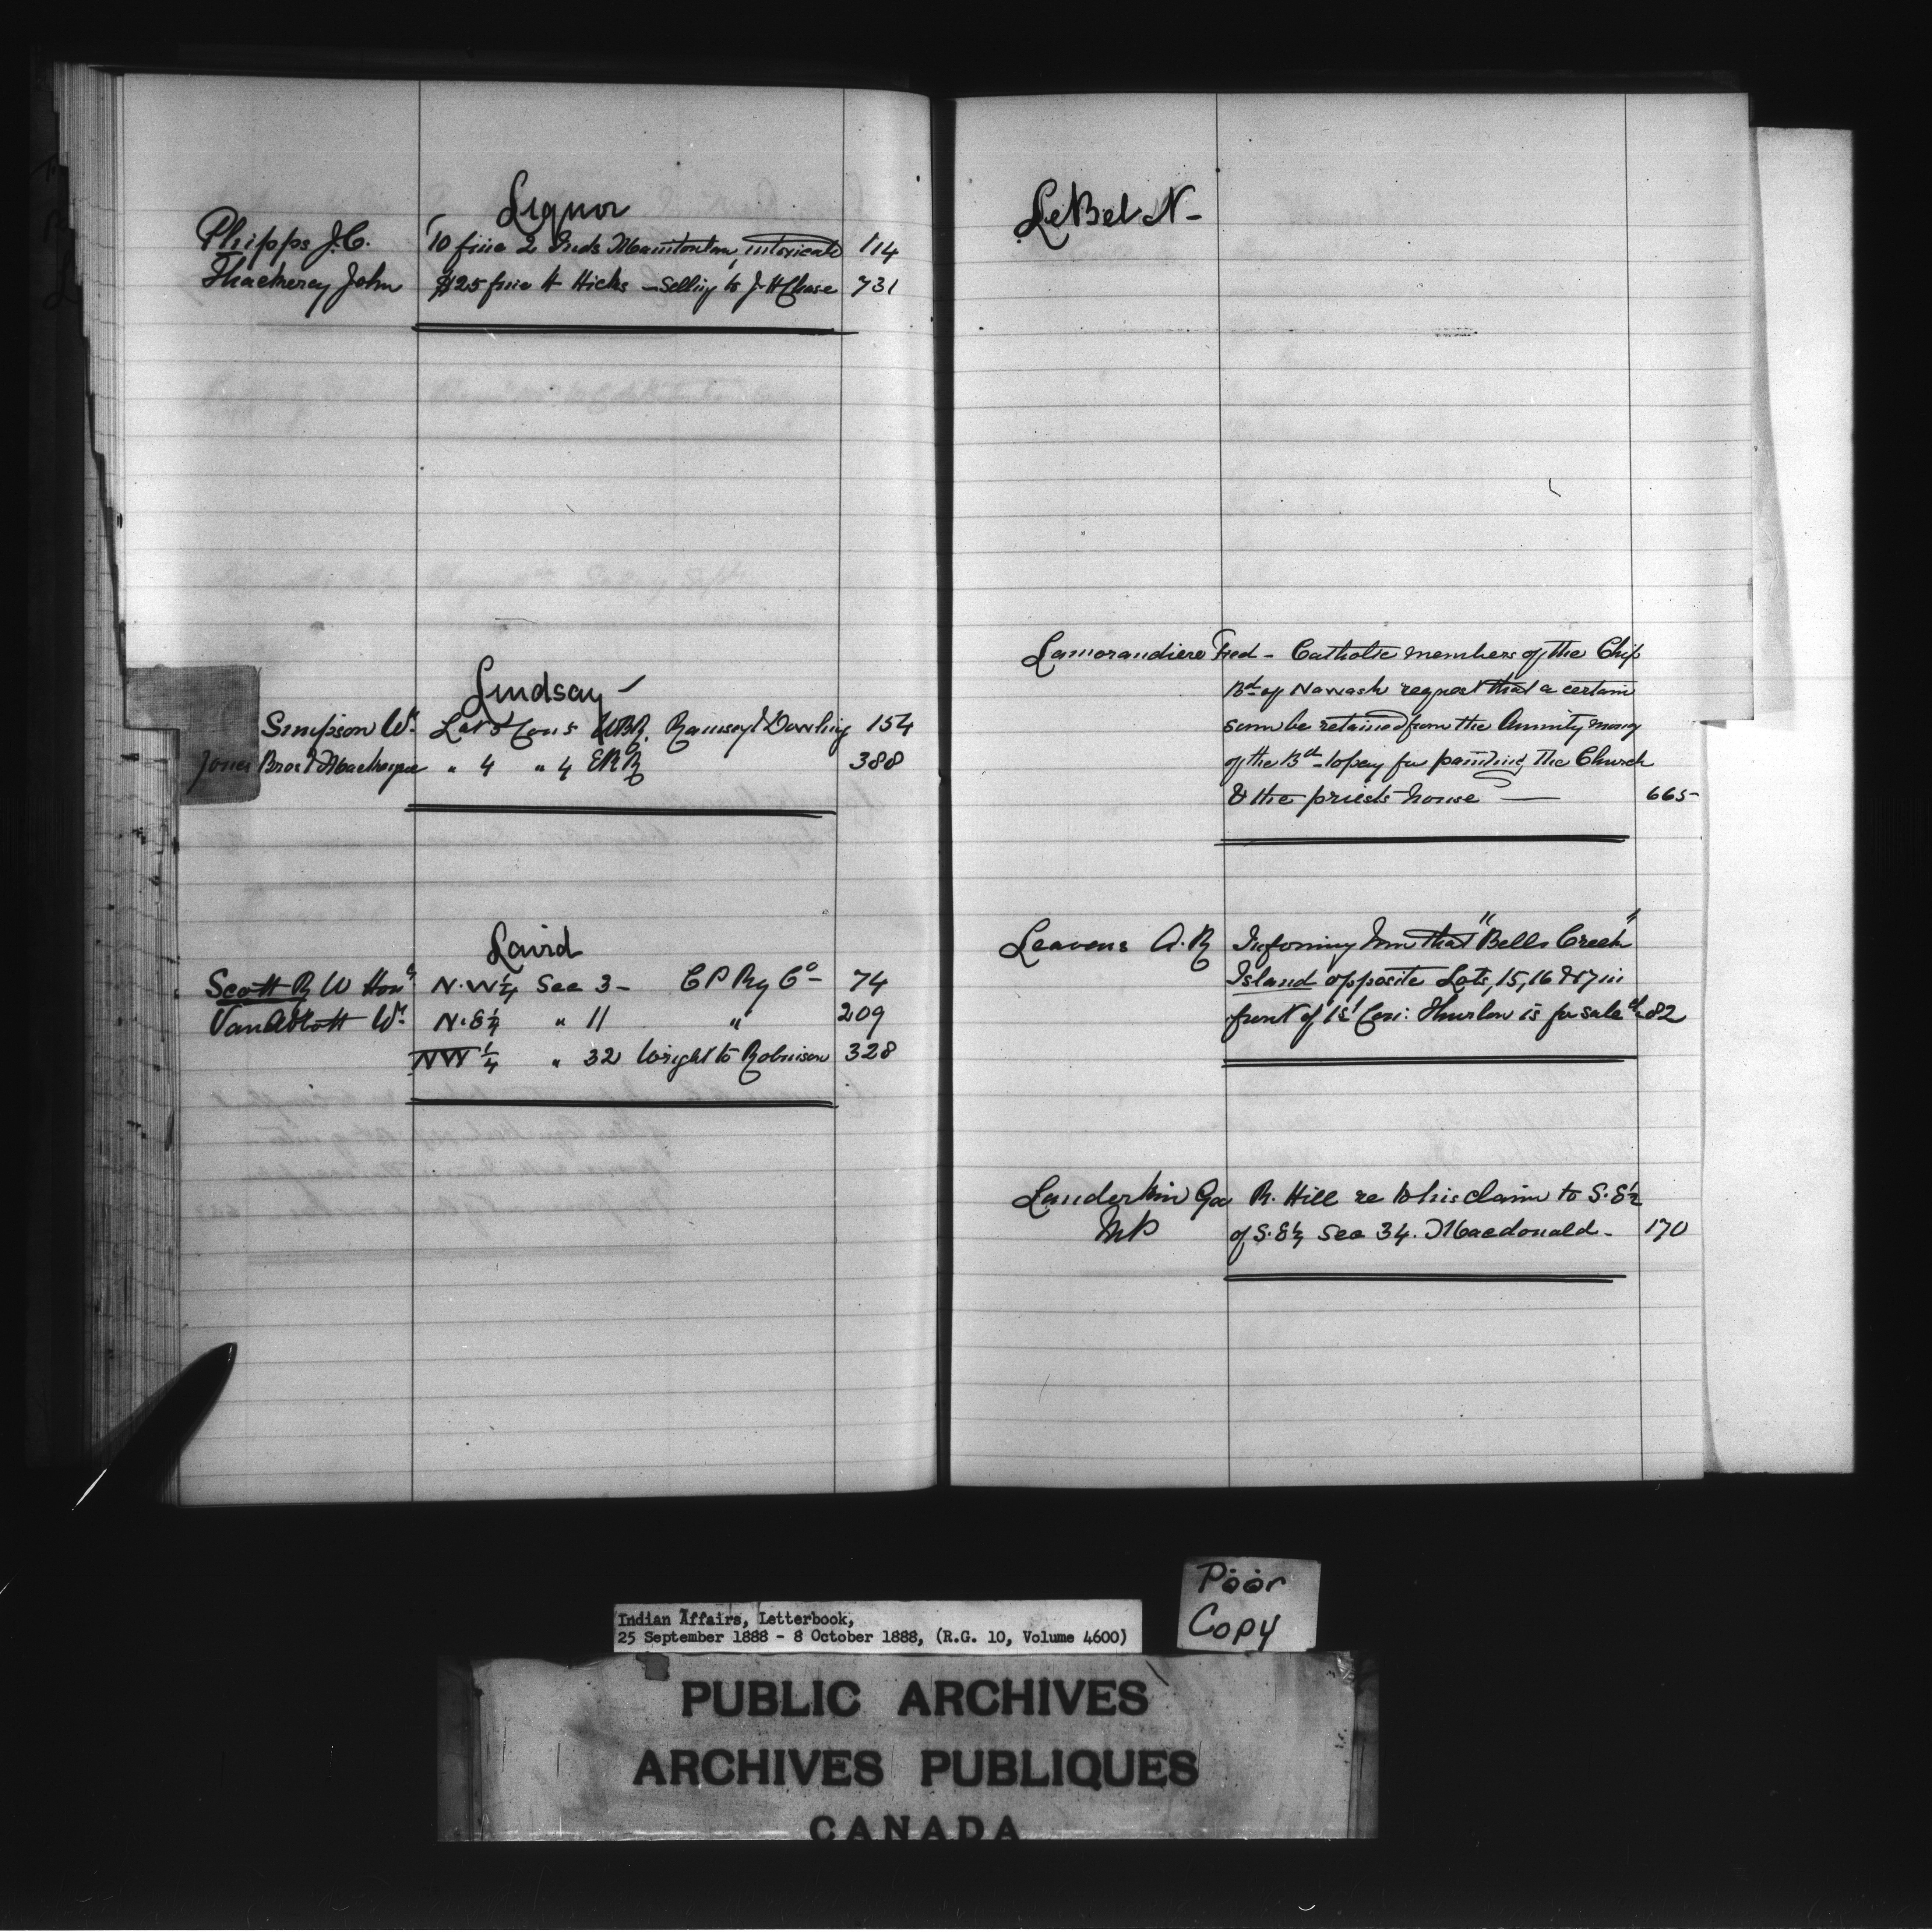 Liquor
Phipps J.C. 10 fine 2 Inds Manitoulin, intoxicate 114
Thackeray John $25 fine H Hicks - Selling to J. H Chase 731
Lindsay -
Simpson Wm Lot 5 Con 5 WBR. Ramsay & Dowling 154
Jones Bros & Mackenzie " 4 " 4 EBR 388
Laird
Scott R W Hon N.W¼ Sec 3 - C P Ry Co - 74
VanAbbott Wm N.E¼ " 11 " 209
NW ¼ " 32 Wright to Robinson 328
LeBel N -
Lamorandiere Fred - Catholic members of the Chip
Bd of Nawash request that a certain
sum be retained from the Annuity money
of the Bd - to pay for painting the Church
& the priests house — 665
Leavens A. R Informing him that "Bells Creek"
Island opposite Lots, 15, 16 & 17 in
front of 1st Con: Thurlow is for sale 82
Landerkin Geo R. Hill re to his claim to S.E½
MP of S.E¼ Sec 34. Macdonald - 170
Poor
Copy
Indian Affairs, Letterbook,
25 September 1888 - 8 October 1888, (R.G. 10, Volume 4600)
PUBLIC ARCHIVES
ARCHIVES PUBLIQUES
CANADA